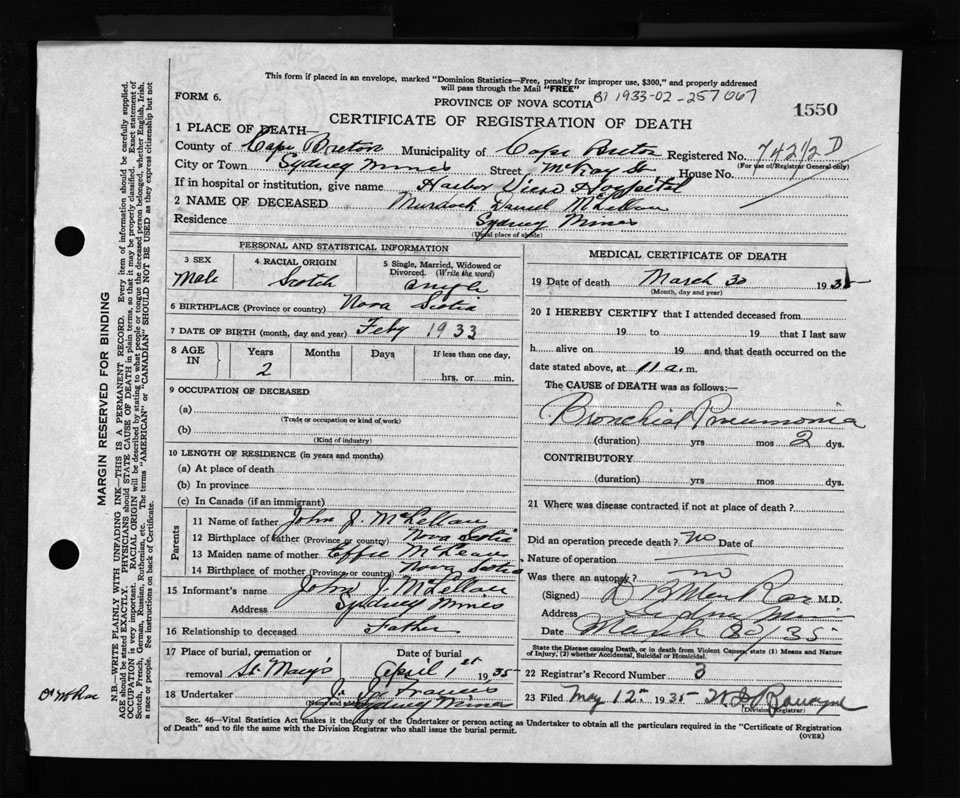 This form if placed in an envelope, marked "Dominion Statistics—Free, penalty for improper use, $300," and properly addressed
will pass through the Mail "FREE"
FORM 6.
PROVINCE OF NOVA SCOTIA BI 1933-02-257067
1550
CERTIFICATE OF REGISTRATION OF DEATH
1 PLACE OF DEATH—
County of Cape Breton Municipality of Cape Breton Registered No. 74212 D
(For use of Registrar General only)
City or Town Sydney Mines Street McKay St House No.
If in hospital or institution, give name Harbor View Hospital
2 NAME OF DECEASED Murdock Daniel McLellan
Residence Sydney Mines
(Usual place of abode)
PERSONAL AND STATISTICAL INFORMATION
3 SEX
Male
4 RACIAL ORIGIN
Scotch
5 Single, Married, Widowed or Divorced. (Write the word)
Single
6 BIRTHPLACE (Province or country) Nova Scotia
7 DATE OF BIRTH (month, day and year) Feby 1933
8 AGE IN
Years Months Days If less than one day,
2
hrs. or min.
9 OCCUPATION OF DECEASED
(a)
(Trade or occupation or kind of work)
(b)
(Kind of industry)
10 LENGTH OF RESIDENCE (in years and months)
(a) At place of death
(b) In province
(c) In Canada (if an immigrant)
Parents
11 Name of father John J. McLellan
12 Birthplace of father (Province or country) Nova Scotia
13 Maiden name of mother Effie McLean
14 Birthplace of mother (Province or country) Nova Scotia
15 Informant's name John J. McLellan
Address Sydney Mines
16 Relationship to deceased Father
17 Place of burial, cremation or removal St. Mary's
Date of burial
April 1st 1935
18 Undertaker J. Francis
(Name and address) Sydney Mines
MEDICAL CERTIFICATE OF DEATH
19 Date of death March 30 1935
(Month, day and year)
20 I HEREBY CERTIFY that I attended deceased from
19 to 19 that I last saw
h alive on 19 and that death occurred on
date stated above, at 11 a.m.
The CAUSE of DEATH was as follows:—
Bronchial Pneumonia
(duration) yrs mos 2 dys.
CONTRIBUTORY
(duration) yrs mos dys.
21 Where was disease contracted if not at place of death?
Did an operation precede death? no Date of
Nature of operation
Was there an autopsy? no
(Signed) M.D.
Address Sydney M
Date March 30/35
State the Disease causing Death, or in death from Violent Causes, state (1) Means and Nature
of Injury, (2) whether Accidental, Suicidal or Homicidal.
22 Registrar's Record Number 3
23 Filed May 12 1935
(Division Registrar)
Sec. 46—Vital Statistics Act makes it the duty of the Undertaker or person acting as Undertaker to obtain all the particulars required in the "Certificate of Registration
of Death" and to file the same with the Division Registrar who shall issue the burial permit.
(OVER)
MARGIN RESERVED FOR BINDING
N.B.—WRITE PLAINLY WITH UNFADING INK—THIS IS A PERMANENT RECORD. Every item of information should be carefully supplied.
AGE should be stated EXACTLY. PHYSICIANS should STATE CAUSE OF DEATH in plain terms, so that it may be properly classified. Exact statement of
OCCUPATION is very important. RACIAL ORIGIN will be described by stating to what people or tongue the deceased person belonged, whether English, Irish,
Scotch, French, German, Russian, Ruthenian, etc. The terms "AMERICAN" or "CANADIAN" SHOULD NOT BE USED as they express citizenship but not
a race or people. See instructions on back of Certificate.